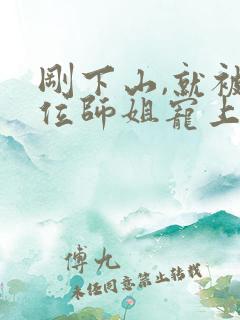 剛下山,就被
位師姐寵上
傅九
未经同意禁止转载